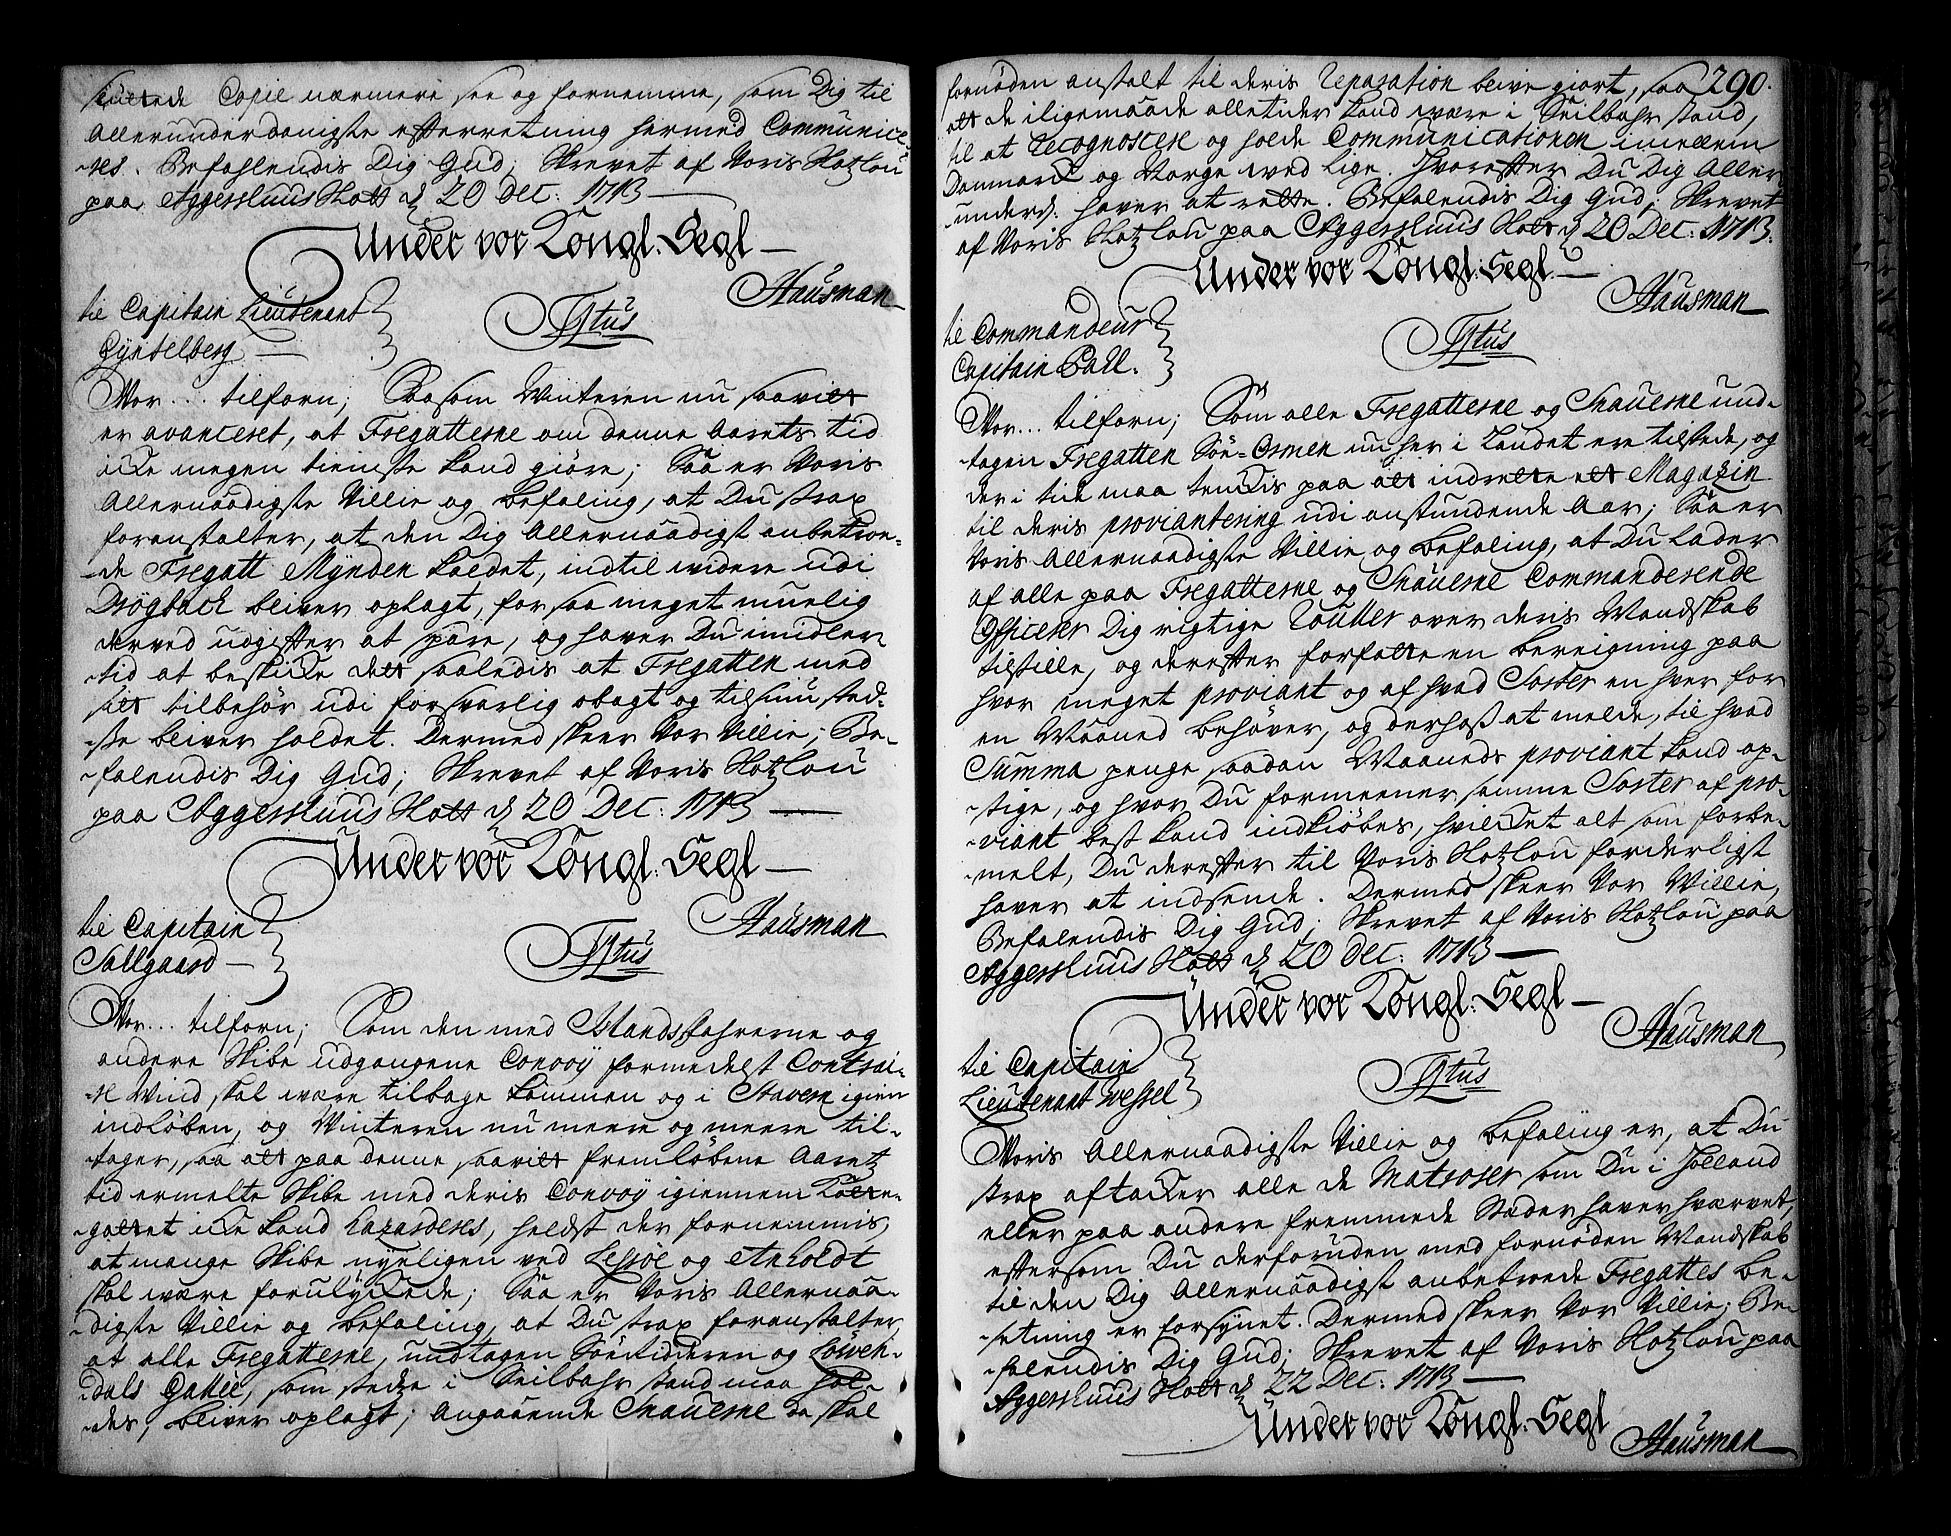 sluttede Copie nærmere see og fornemme, som Dig til
Allerunderdanigste efterretning hermed Communice-
-res. Befahlendis Dig Gud; Skrevet af Voris Slotzlou
paa Aggershuus Slott d. 20 Dec. 1713
Under vor Kongl. Segl
Hausman
til Capitain Lieutenant
Gyntelberg
Tytus
Vor... tilforn; Saasom Winteren nu saavit
er avanceret, at Fregatterne om denne Aarets tid
icke megen tieniste kand giøre; Saa er Voris
Allernaadigste Villie og befaling, at Du strax
foranstalter, at den Dig Allernaadigst anbetroe-
-de Fregatt Mynden kaldet, indtil widere udi
Drøgback bliver oplagt, for saa meget muelig
derved udgifter at spare, og haver Du imidler-
-tid at beskicke dett saaledis at Fregatten med
sitt tilbehør udi forsvarlig obagt og tilsiun sted-
-sse bliver holdet. Dermed skeer Vor Villie; Be-
-falendis Dig Gud; Skrevet af Voris Slotzlou
paa Aggershuus Slott d. 20 Dec. 1713
Under vor Kongl. Segl
Hausman
til Capitain
Tallgaard
Tytus
Vor... tilforn; Som den med Islandsfahrerne og
andere Skibe udgangene Convoÿ formedelst Contrai-
-re Wind skal være tilbage kommen og i Stavern igien
indløben, og Winteren nu meere og meere til-
-tager, saa att paa denne saavitt fremløbene Aaretz
tid ermelte Skibe med deris Convoÿ igiennem Katte-
-gattet icke kand hazarderes, heldst der fornemmis,
at mange Skibe nyeligen ved Lessøe og Anholdt
skal være forulyckede; Saa er Voris Allernaa-
-digste Villie og befaling, at Du strax foranstalter,
at alle Fregatterne, undtagen Søeridderen og Løwen-
-dals Gallei, som stedze i Seilbahr stand maa hol-
-des, bliver oplagt; Angaaende Snauerne da skal
290.
fornøden anstalt til deris Reparation blive giort, saa
att de iligemaade alletider kand være i Seilbahr stand,
til at recognoscere og holde Communicationen imellem
Danmark og Norge ved lige. Hvorefter Du Dig Aller
underd. haver at rette. Befalendis Dig Gud; Skrevet
af Voris Slotzlou paa Aggershuus Slott d. 20 Dec. 1713.
Under vor Kongl. Segl.
Hausman
til Commandeur
Capitain Pall.
Tytus
Vor... tilforn; Som alle Fregatterne og Snauerne und-
-tagen Fregatten Søe-Ormen nu her i Landet ere tilstede, og
der i tide maa tenckis paa att indrette ett Magazin
til deris proviantering udi anstundende Aar; Saa er
Voris Allernaadigste Villie og befaling, at Du lader
af alle paa Fregatterne og Snauerne Commanderende
Officerer Dig rigtige Roulter over deris Mandskab
tilstille, og derefter forfatte en bereigning paa
hvor meget proviant og af hvad Sorter en hver for
en Maaned behøver, og derhoss at melde, til hvad
Summa penge saadan Maaneds proviant kand op-
-stige, og hvor Du formeener samme Sorter af pro-
-viant best kand indkiøbes, hvilcket alt som forbe-
-melt, Du derefter til Voris Slotzlou forderligst
haver at indsende. Dermed skeer Vor Villie,
Befalendis Dig Gud; Skrevet af Voris Slotzlou paa
Aggershuus Slott d. 20 Dec. 1713
Under vor Kongl. Segl
Hausman
til Capitain
Lieutenant Wessel
Tytus
Voris Allernaadigste Villie og befaling er, at Du
strax aftacker alle de Matroser som Du i Holland
eller paa andere fremmede Stæder haver hværvet,
eftersom Du derforuden med fornøden Mandskab
til den Dig Allernaadigst anbetroede Fregattes be-
-setning er forsynet. Dermed skeer Vor Villie; Be-
-falendis Dig Gud; Skrevet af Voris Slotzlou paa
Aggershuus Slott d. 22 Dec. 1713
Under vor Kongl. Segl
Hausman